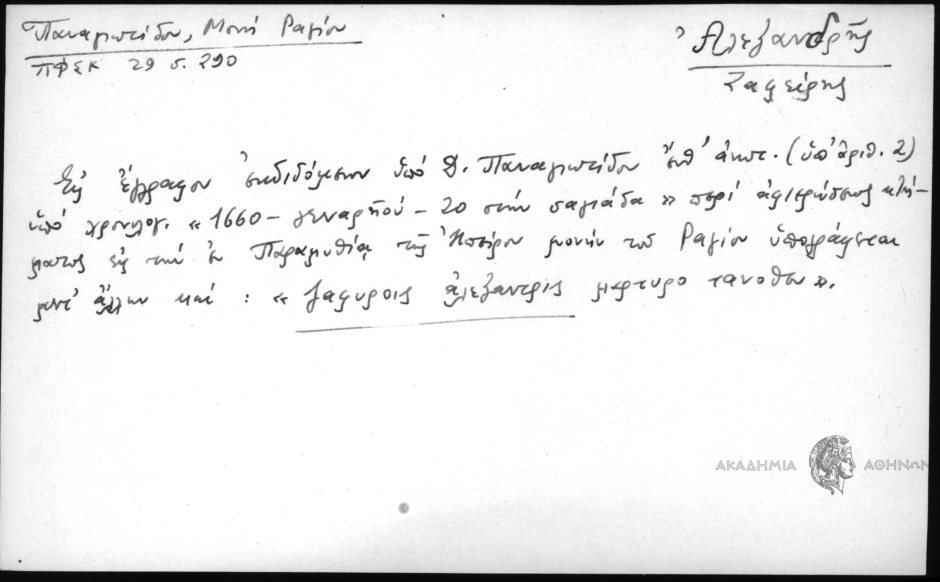 Παναγιωτίδου, Μονή Ραγίου
ΠΦΣΚ 29 σ. 290
Ἀλεξανδρῆς
Ζαφείρης
Εἰς ἔγγραφον ἐκδιδόμενον ὑπό Δ. Παναγιωτίδου ἔνθ' ἀνωτ. (ὑπ' ἀριθ. 2)
ὑπό χρονολογ. « 1660 – γεναρηού – 20 στήν σαγιάδα » περί ἀφιερώσεως κτή-
ματος εἰς τήν ἐν Παραμυθίᾳ τῆς Ἠπείρου μονήν τοῦ Ραγίου ὑπογράφεται
μετ' ἄλλων καί : « ζαφυροις ἀλεξαντρις μαρτυρο τανοθεν ».
ΑΚΑΔΗΜΙΑ ΑΘΗΝΩΝ